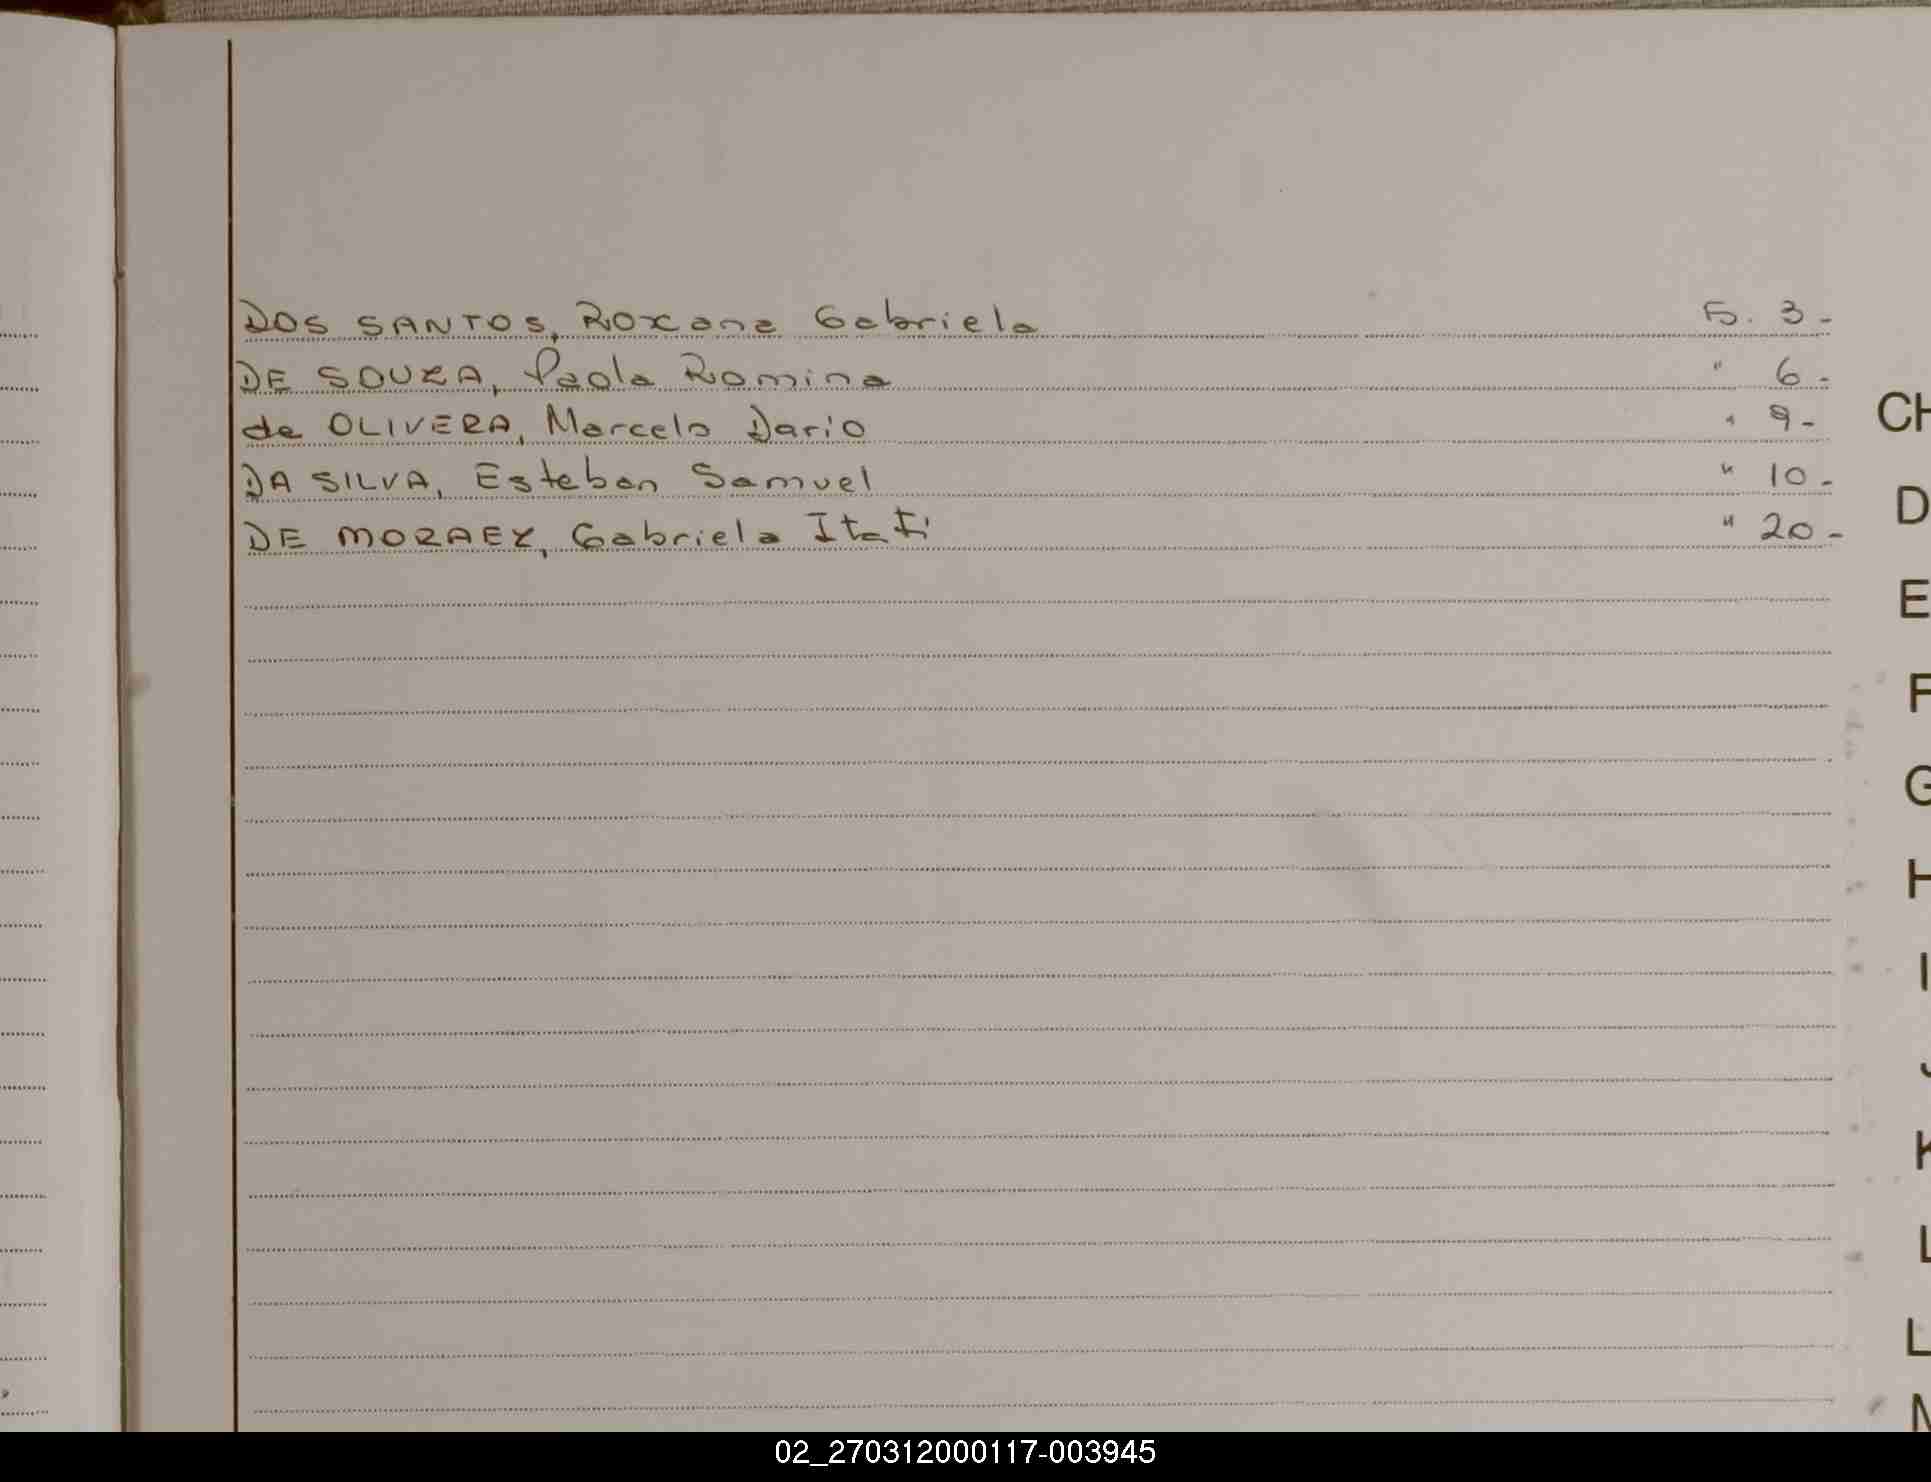 DOS SANTOS, Roxana Gabriela F. 3-
DE SOUZA, Paola Romina " 6-
de OLIVERA, Marcelo Dario " 9-
DA SILVA, Esteban Samuel " 10-
DE MORAEZ, Gabriela Itatí " 20-
CH
D
E
F
G
H
I
J
K
L
L
M
02_270312000117-003945